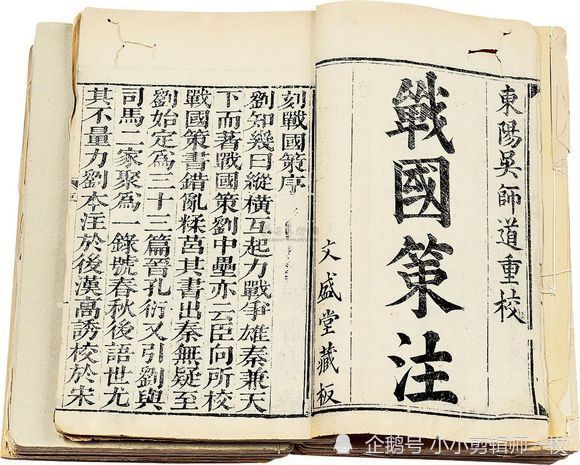 東陽吳師道重校
戰國策注
文盛堂藏板
刻戰國策序
劉知幾曰縱橫互起力戰爭雄秦兼天
下而著戰國策劉中壘亦云臣向所校
戰國策書錯亂糅莒其書出秦無疑至
劉始定為三十三篇晉孔衍又引劉與
司馬二家聚為一錄號春秋後語世尤
其不量力劉本注於後漢高誘校於宋
企鹅号 小小剪辑师一枚